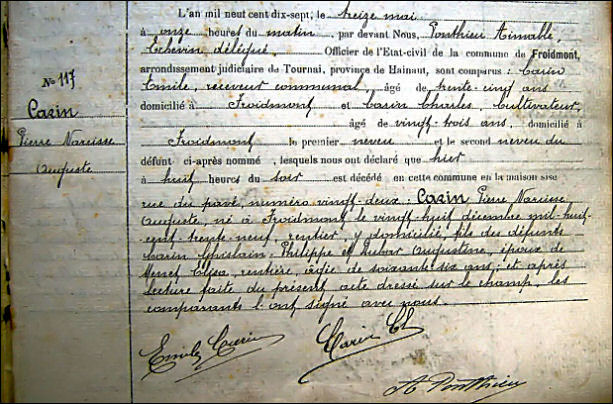 L'an mil neuf cent dix-sept, le treize mai
à onze heures du matin, par devant Nous, Ponthieu Aimable,
Echevin délégué, Officier de l'Etat-civil de la commune de Froidmont,
arrondissement judiciaire de Tournai, province de Hainaut, sont comparus : Carin
N° 117
Emile, receveur communal, âgé de trente-cinq ans
Carin
domicilié à Froidmont et Carin Charles, Cultivateur,
âgé de vingt-trois ans, domicilié à
Pierre Narcisse
Froidmont le premier neveu et le second neveu du
Auguste
défunt ci-après nommé, lesquels nous ont déclaré que hier
à huit heures du soir est décédé en cette commune en la maison sise
rue du pavé, numéro vingt-deux : Carin Pierre Narcisse
Auguste, né à Froidmont le vingt huit décembre mil-huit-
cent-trente-neuf, rentier, y domicilié, fils des défunts
Carin Ghislain-Philippe et Augustine, époux de
Elisa, rentière, âgée de soixante six ans; et après
lecture faite du présent acte dressé sur le champ, les
comparants l'ont signé avec nous.
Emile Carin
Carin Ch
A Ponthieu